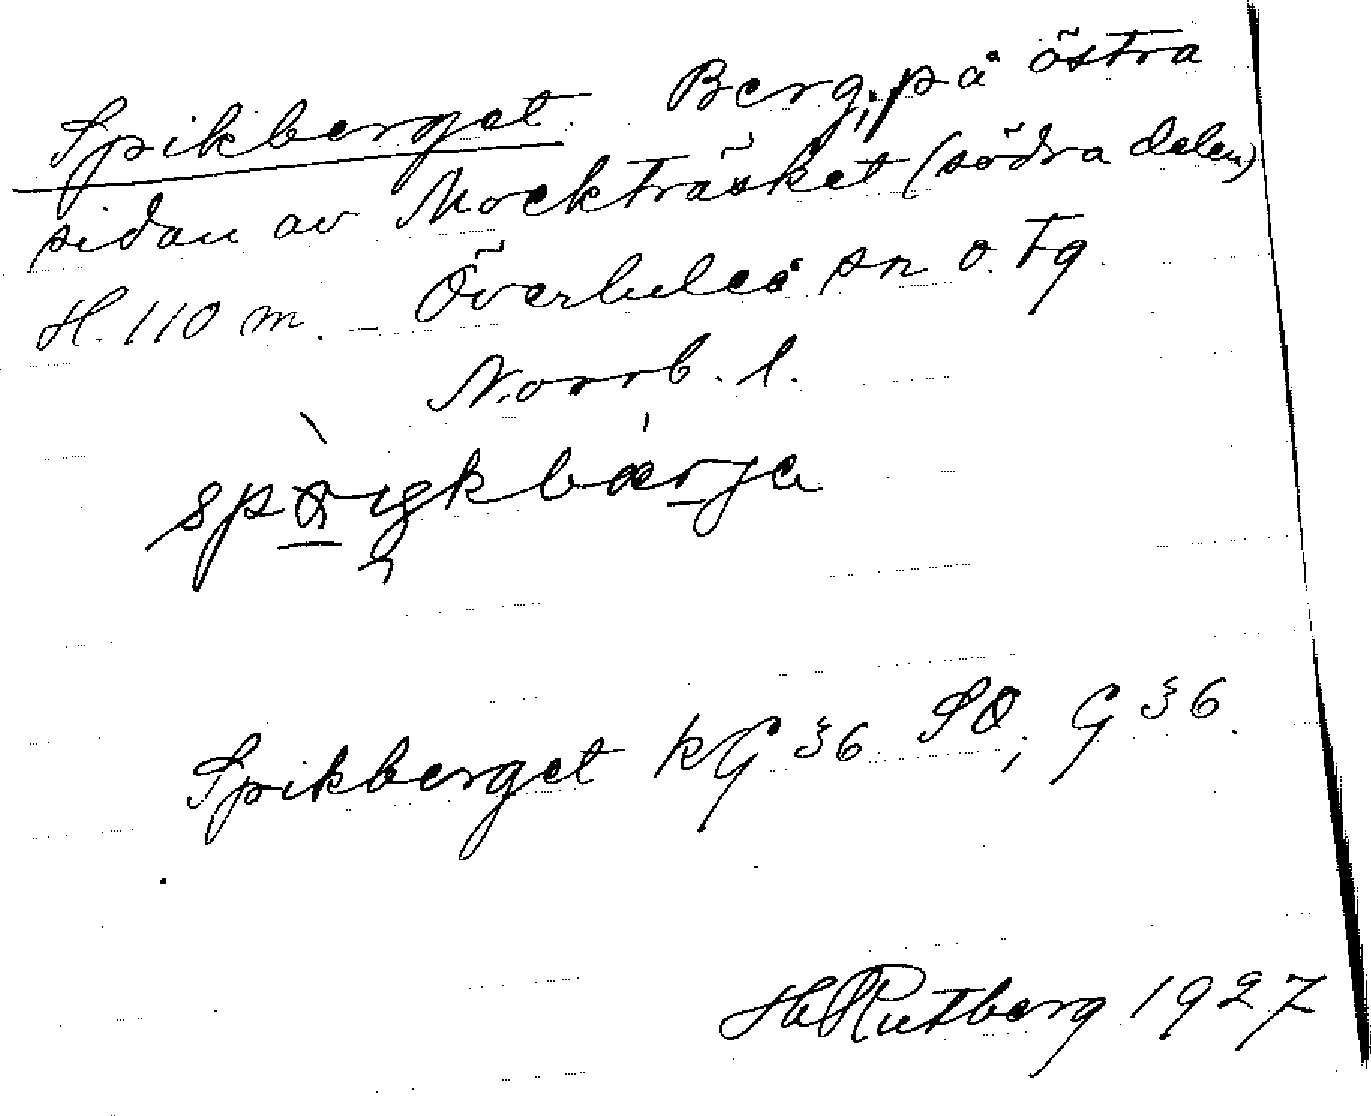 Spikberget. Berg, på östra
sidan av Mockträsket (södra delen)
H. 110 m. – Överluleå sn o. tg
Norrb. l.
Spikberget kG 36 SO, G 36.
Hl Rutberg 1927